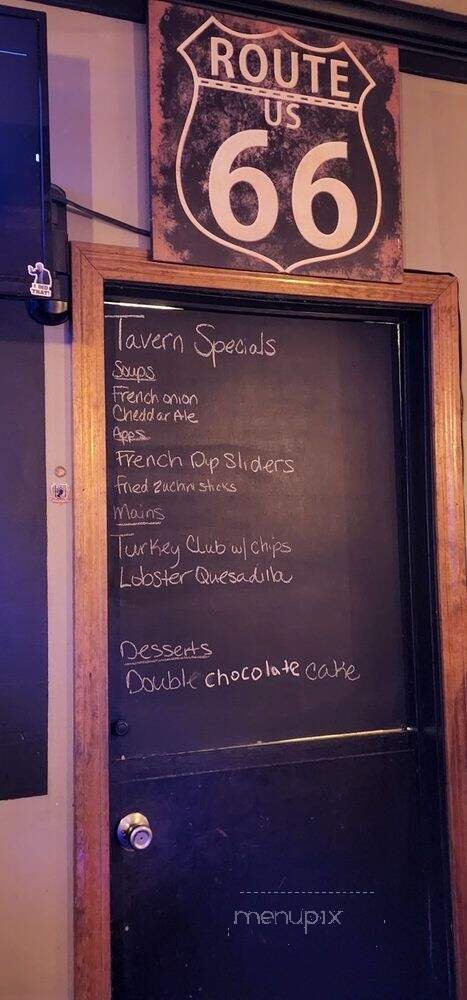 ROUTE
US
66
I DID
THAT!
Tavern Specials
Soups
French onion
Cheddar Ale
Apps
French Dip Sliders
Fried zuchni sticks
Mains
Turkey Club w/ chips
Lobster Quesadilla
Desserts
Double chocolate cake
menupix